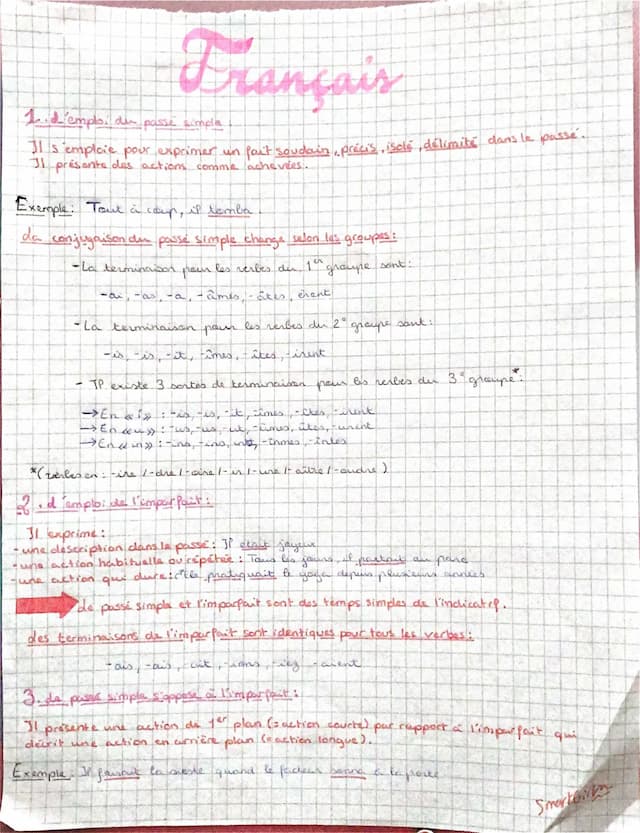 Français
1. L'emploi du passé simple.
Il s'emploie pour exprimer un fait soudain, précis, isolé, délimité dans le passé.
Il présente des actions comme achevées.
Exemple: Tout à coup, il tomba.
La conjugaison du passé simple change selon les groupes:
-La terminaison pour les verbes du 1er groupe sont:
-ai, -as, -a, -âmes, -âtes, èrent
-La terminaison pour les verbes du 2° groupe sont:
-is, -is, -it, -îmes, -îtes, -irent
- Il existe 3 sortes de terminaison pour les verbes du 3° groupe*:
→En «i» : -is, -is, -it, -îmes, -îtes, -irent
→En «u» : -us, -us, -ut, -ûmes, ûtes, -urent
→En «in» : -ins, -ins, int, -înmes, -întes
*(verbes en: -ire /-dre /-oire /-ir /-ure /-aître /-oudre)
2. L'emploi de l'imparfait:
Il exprime:
-une description dans le passé: Il était joyeux
-une action habituelle ou répétée: Tous les jours, il partait au parc
-une action qui dure: elle pratiquait le yoga depuis plusieurs années
Le passé simple et l'imparfait sont des temps simples de l'indicatif.
Les terminaisons de l'imparfait sont identiques pour tous les verbes:
-ais, -ais, -ait, -ions, -iez -aient
3. Le passé simple s'oppose à l'imparfait:
Il présente une action de 1er plan (=action courte) par rapport à l'imparfait qui
décrit une action en arrière plan (=action longue).
Exemple: Il faisait la sieste quand le facteur sonna à la porte